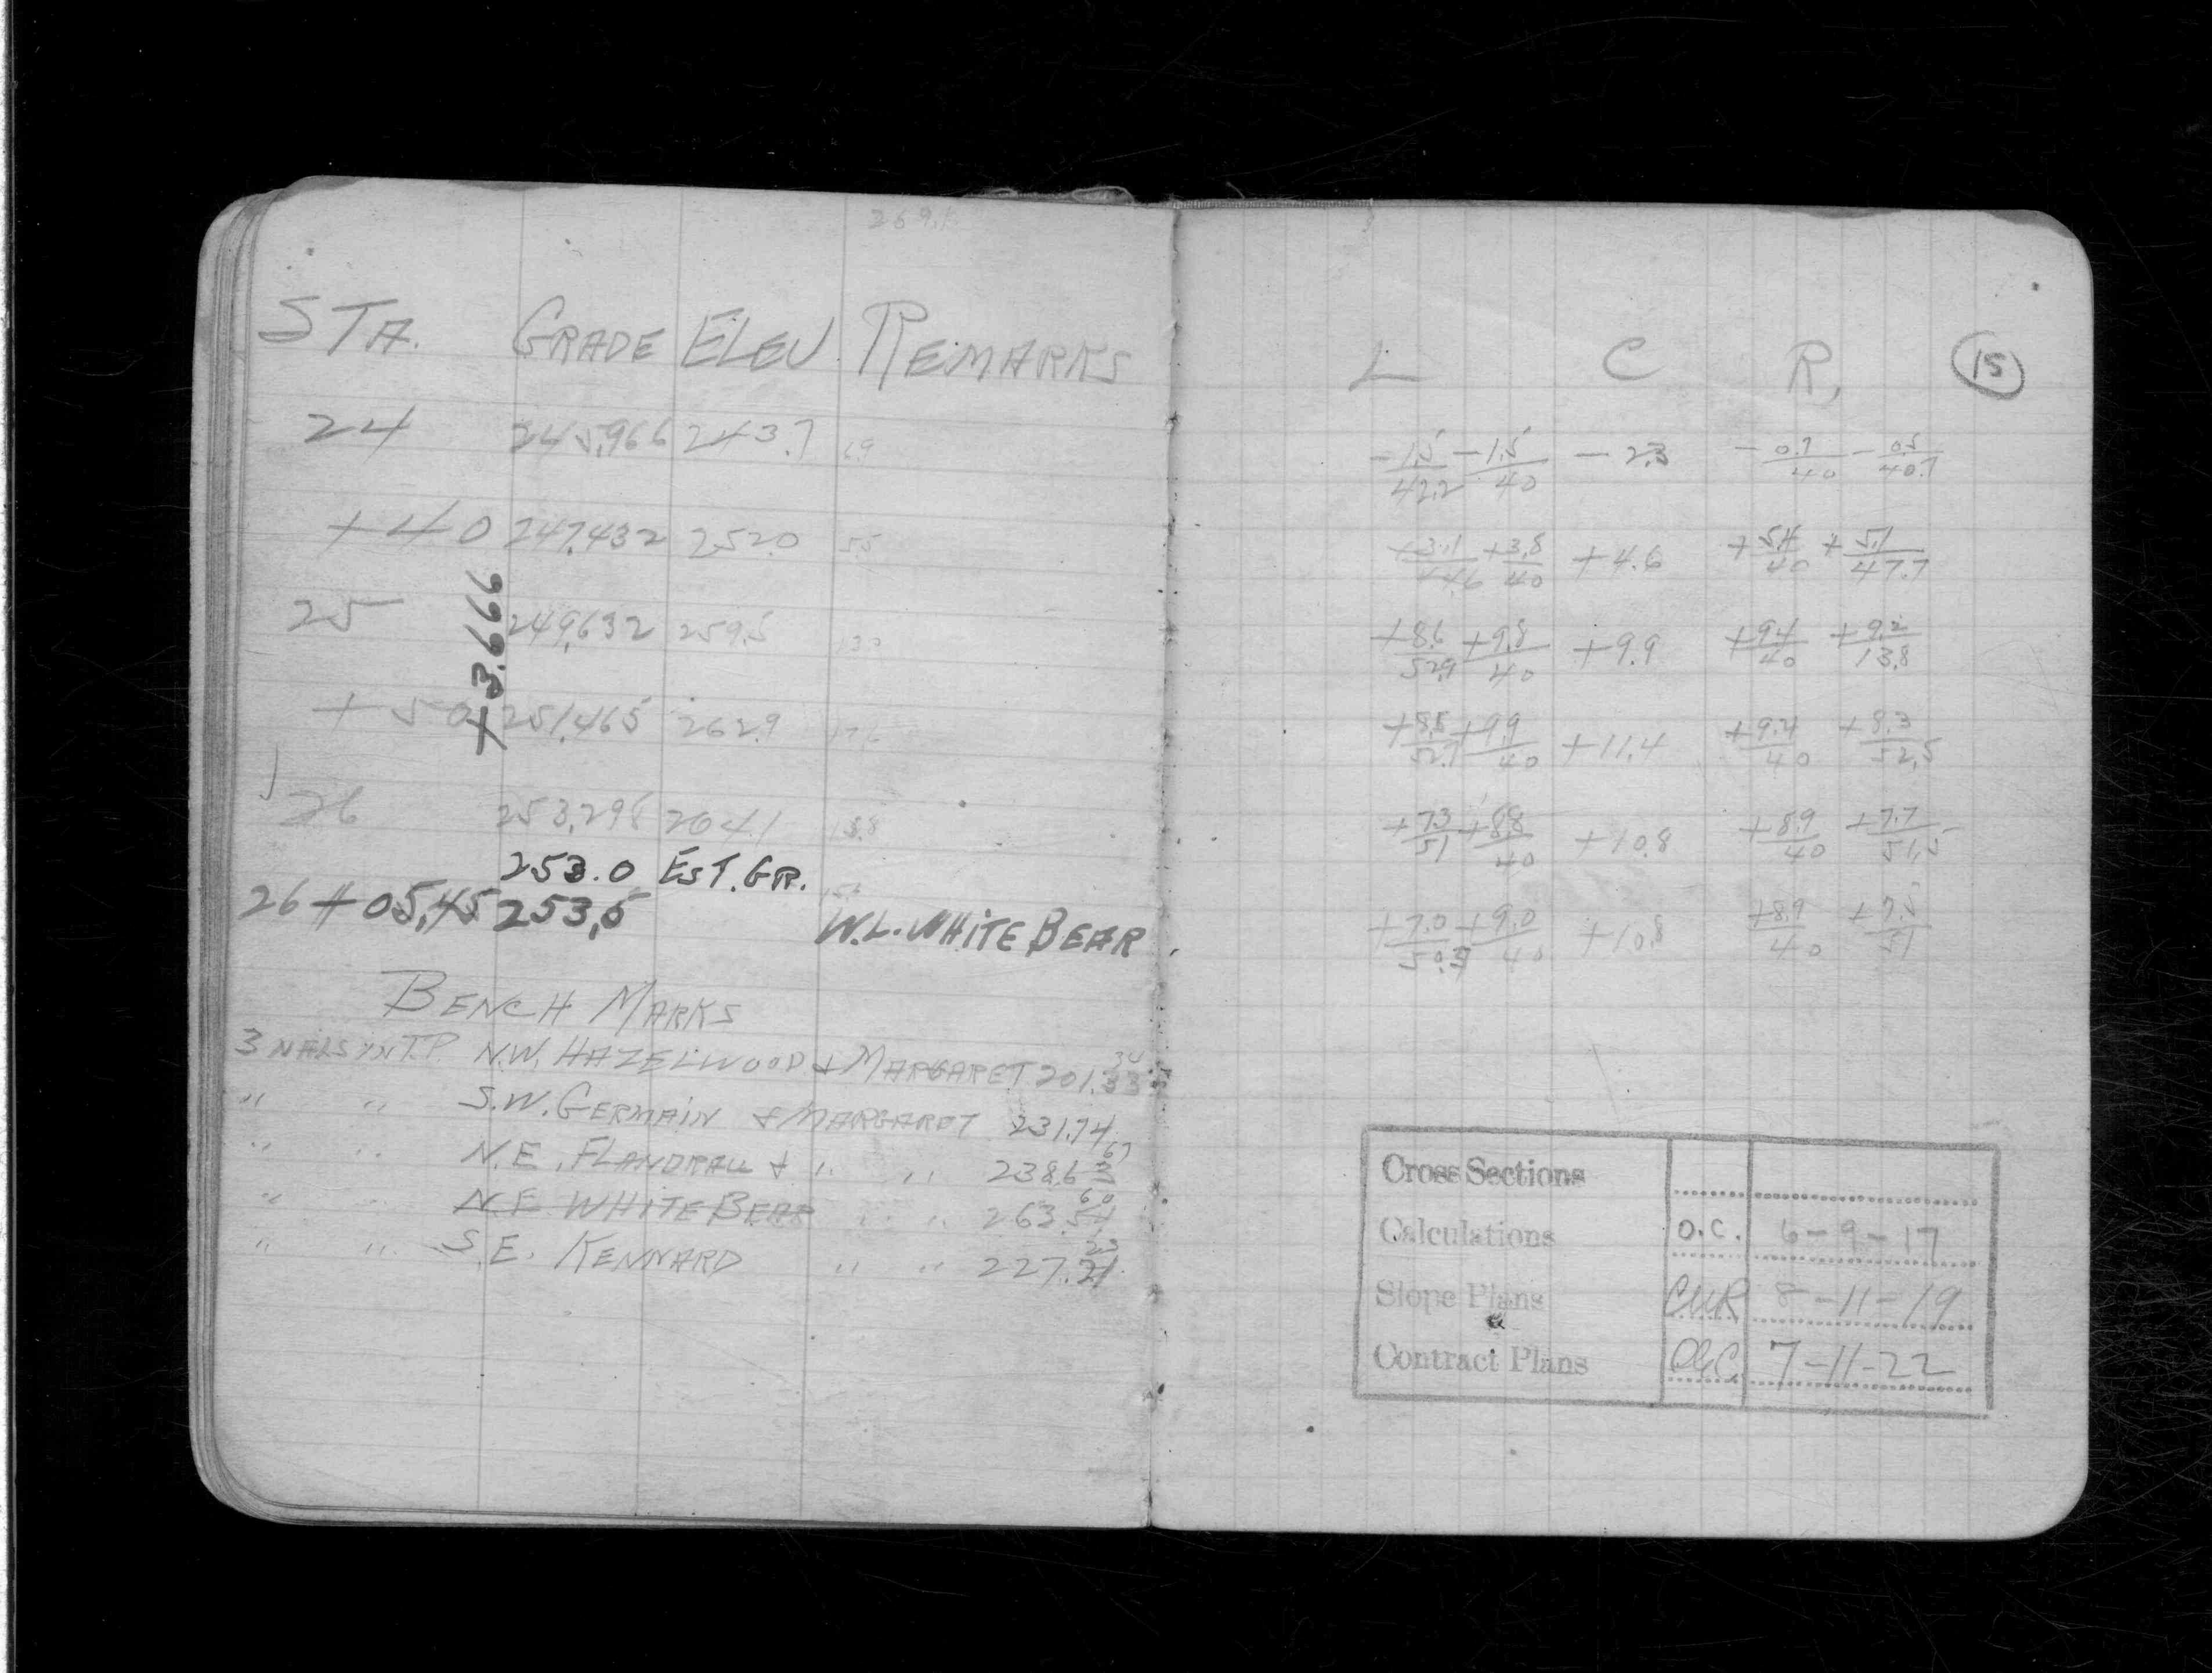 STA. GRADE ELEV REMARKS
24 245.966 243.7 1.9
+40 247.432 252.0 5.5
25 249.632 259.5 13.0
+50 251.465 262.9
+3.9666
26 253.298 264.1
253.0 EST. GR.
26+05.45 253.5
W.L. WHITE BEAR
BENCH MARKS
3 NAILS IN T.P. N.W. HAZELWOOD & MARGARET 201.33
" " S.W. GERMAIN & MARGARET 231.74
" " N.E. FLANDRAU & " " 238.6
" " N.E. WHITE BEAR " " 263.54 60
" " S.E. KENNARD " " 227.21 23
L C R, 15
-1.5/42.2 -1.5/40 -2.3 -0.7/40 -0.5/40.7
+3.1/44.6 +3.8/40 +4.6 +5.4/40 +5.1/47.7
+8.6/52.9 +9.8/40 +9.9 +9.4/40 +9.2/13.8
+8.5/52.7 +9.9/40 +11.4 +9.4/40 +8.3/52.5
+7.3/51 +8.8/40 +10.8 +8.9/40 +7.7/51.5
+7.0/50.5 +9.0/40 +10.8 +8.9/40 +7.5/51
Cross Sections
Calculations O.C. 6-9-17
Slope Plans CWR 8-11-19
Contract Plans 7-11-22